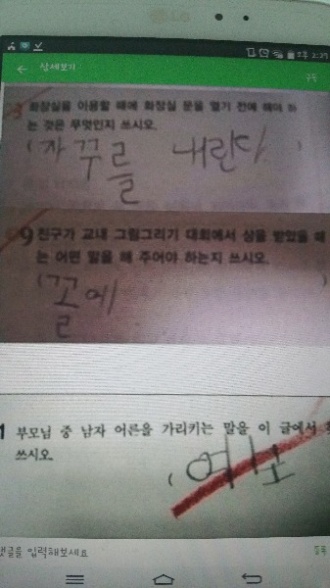 LG
오후 2:27
← 상세보기
화장실을 이용할 때에 화장실 문을 열기 전에 해야 하
는 것은 무엇인지 쓰시오.
(자꾸를 내린다)
9 친구가 교내 그림그리기 대회에서 상을 받았을 때
는 어떤 말을 해 주어야 하는지 쓰시오.
(꼴에
1 부모님 중 남자 어른을 가리키는 말을 이 글에서
쓰시오.
(여보
댓글을 입력해보세요 등록